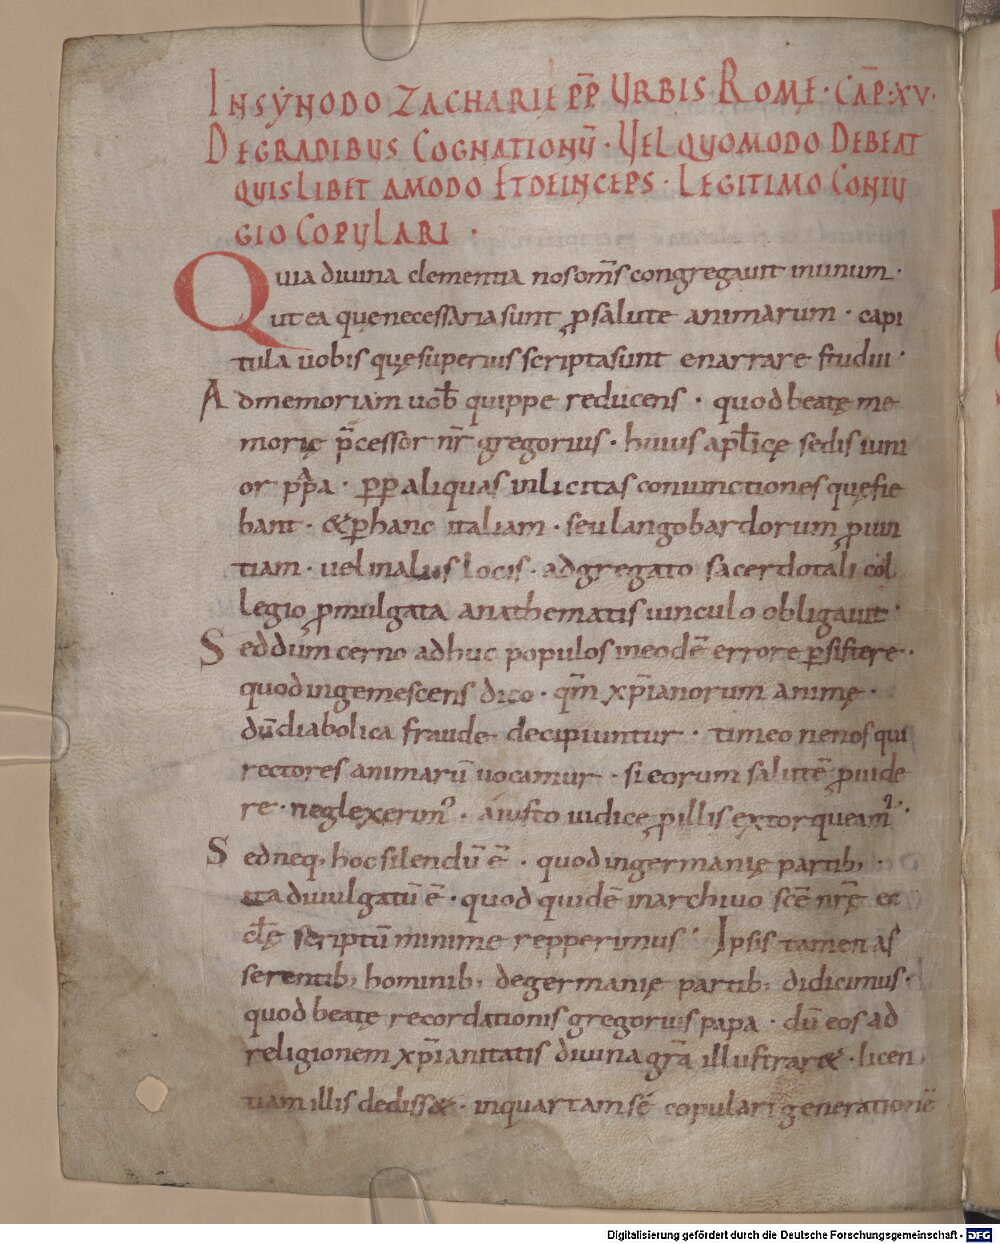 IN SYNODO ZACHARIE PP̄ URBIS ROMĘ · CAP̄ · XV ·
DE GRADIBUS COGNATIONŪ · VEL QUOMODO DEBEAT
QUISLIBET AMODO ET DEINCEPS · LEGITIMO CONIU
GIO COPULARI ·
Quia diuina clementia nos om̄s congregauit in unum ·
ut ea quę necessaria sunt ꝓ salute animarum · capi
tula uobis quę superius scripta sunt enarrare studui ·
Ad memoriam uob̄ quippe reducens · quod beatę me
morię p̄cessor nr̄ gregorius · huius apl̄icę sedis iuni
or pp̄a · ꝓp aliquas inlicitas coniunctiones quę fie
bant · & ꝑ hanc italiam · seu langobardorum ꝓuin
tiam · uel in aliis locis · adgregato sacerdotali col
legio ꝓmulgata anathematis uinculo obligauit ·
Sed dum cerno adhuc populos in eodē errore ꝑsistere ·
quod ingemescens dico · qm̄ xp̄ianorum animę ·
dū diabolica fraude decipiuntur · timeo ne nos qui
rectores animarū uocamur · si eorum salutē ꝓuide
re · neglexerim᾿ · a iusto iudice ꝓ illis extorqueam᾿ ·
Sed neq; hoc silendū ē · quod in germanię partib; ·
ita diuulgatū ē · quod quidē in archiuo scē nrę̄ ec
cl̄ę scriptū minime repperimus · Ipsis tamen as
serentib; hominib; de germanię partib; didicimus ·
quod beatę recordationis gregorius papa · dū eos ad
religionem xp̄ianitatis diuina gr̄a illustrar& · licen
tiam illis dediss& · in quarta m se copulari generationē
Digitalisierung gefördert durch die Deutsche Forschungsgemeinschaft · DFG